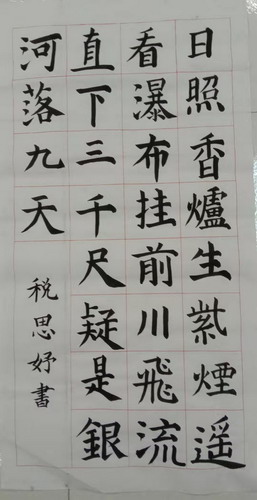 日照香爐生紫煙遥
看瀑布挂前川飛流
直下三千尺疑是銀
河落九天
税思妤書